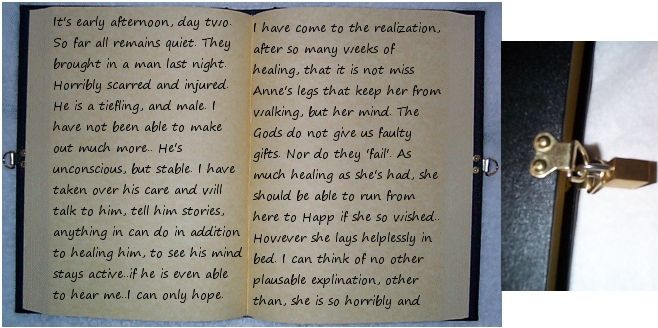 It's early afternoon, day two.
So far all remains quiet. They
brought in a man last night.
Horribly scarred and injured.
He is a tiefling, and male. I
have not been able to make
out much more.. He's
unconscious, but stable. I have
taken over his care and will
talk to him, tell him stories,
anything in can do in addition
to healing him, to see his mind
stays active..if he is even able
to hear me..I can only hope.
I have come to the realization,
after so many weeks of
healing, that it is not miss
Anne's legs that keep her from
walking, but her mind. The
Gods do not give us faulty
gifts. Nor do they 'fail'. As
much healing as she's had, she
should be able to run from
here to Happ if she so wished..
However she lays helplessly in
bed. I can think of no other
plausable explination, other
than, she is so horribly and